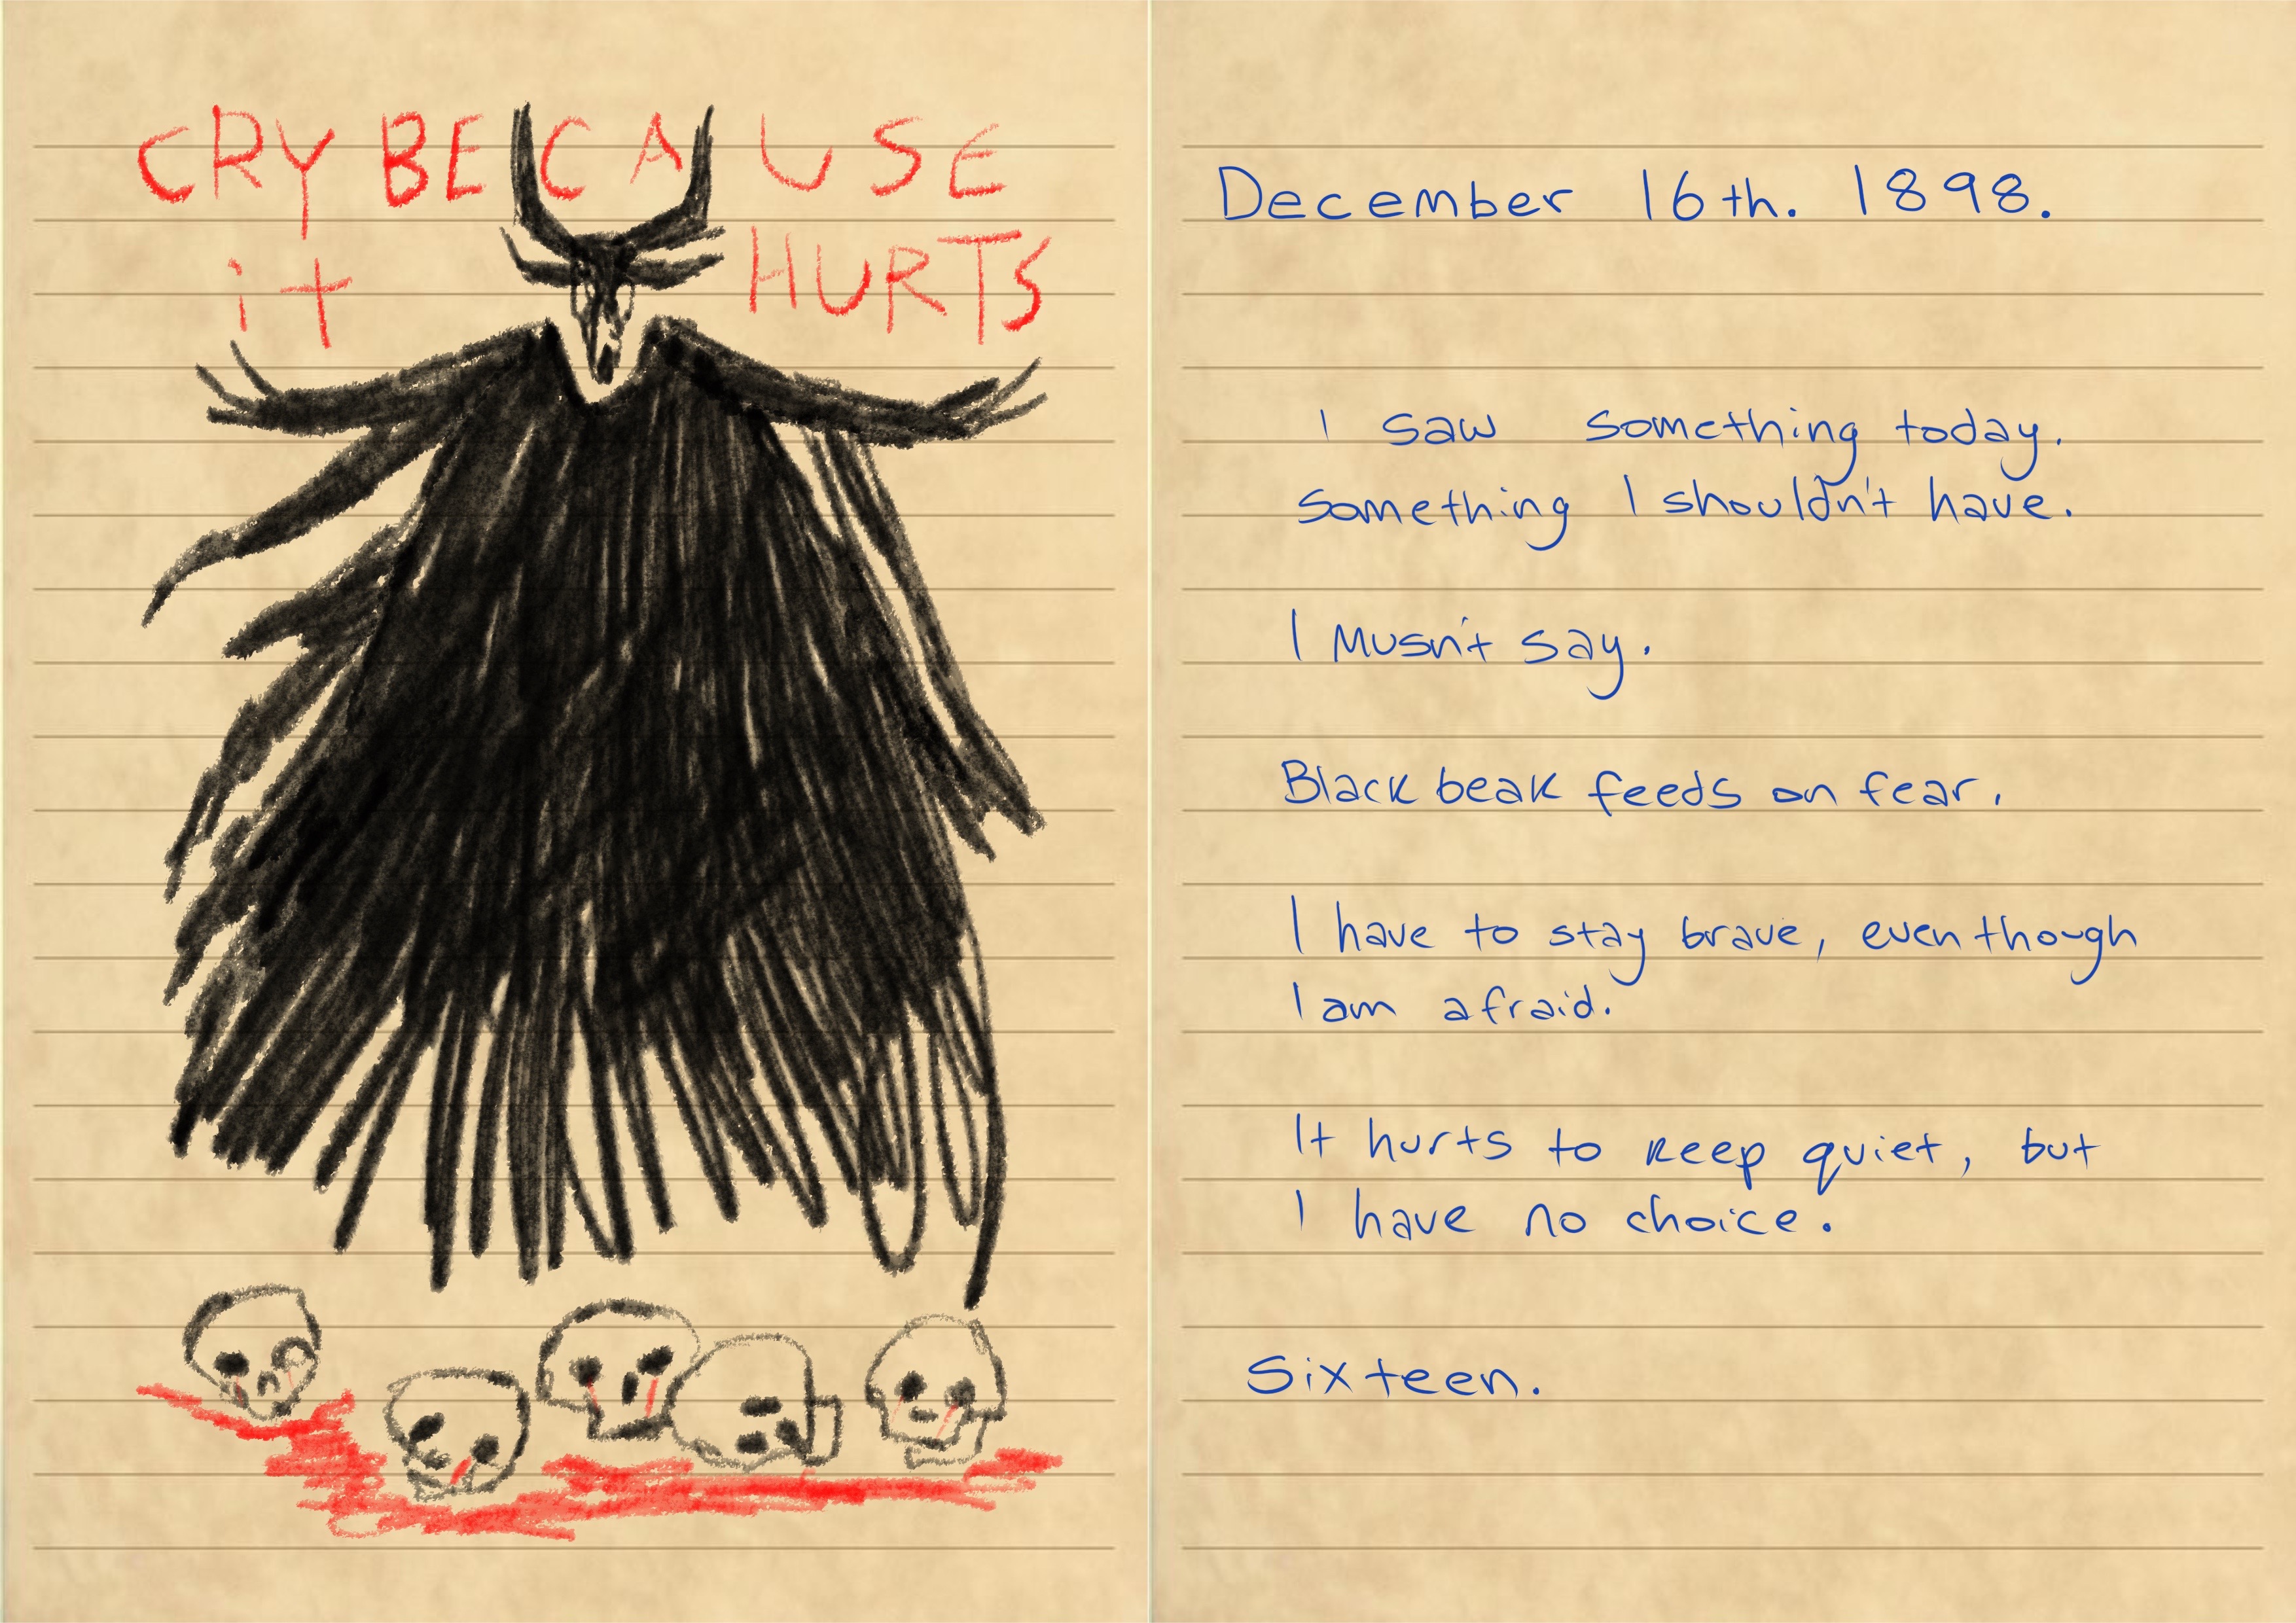 CRY BECAUSE
it HURTS
December 16th. 1898.
I saw something today.
Something I shouldn't have.
I Musn't say.
Black beak feeds on fear.
I have to stay brave, even though
I am afraid.
It hurts to keep quiet, but
I have no choice.
Sixteen.